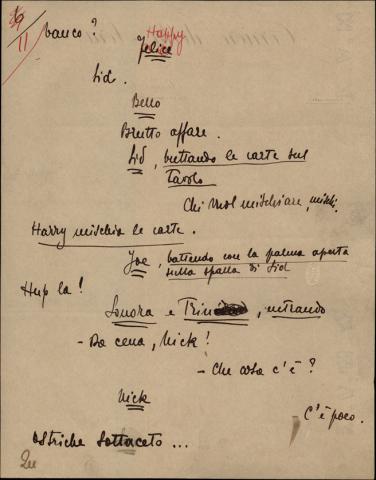 banco?
Happy
Felice
Sid.
Bello
Brutto affare.
Sid, buttando le carte sul
tavolo
Chi vuol mischiare, mischi.
Harry mischia le carte.
Joe, battendo con la palma aperta
sulla spalla di Sid
Hup la!
Sonora e Trin, entrando
- Da cena, Nick!
- Che cosa c'è?
Nick
C'è poco.
Ostriche sottaceto ...